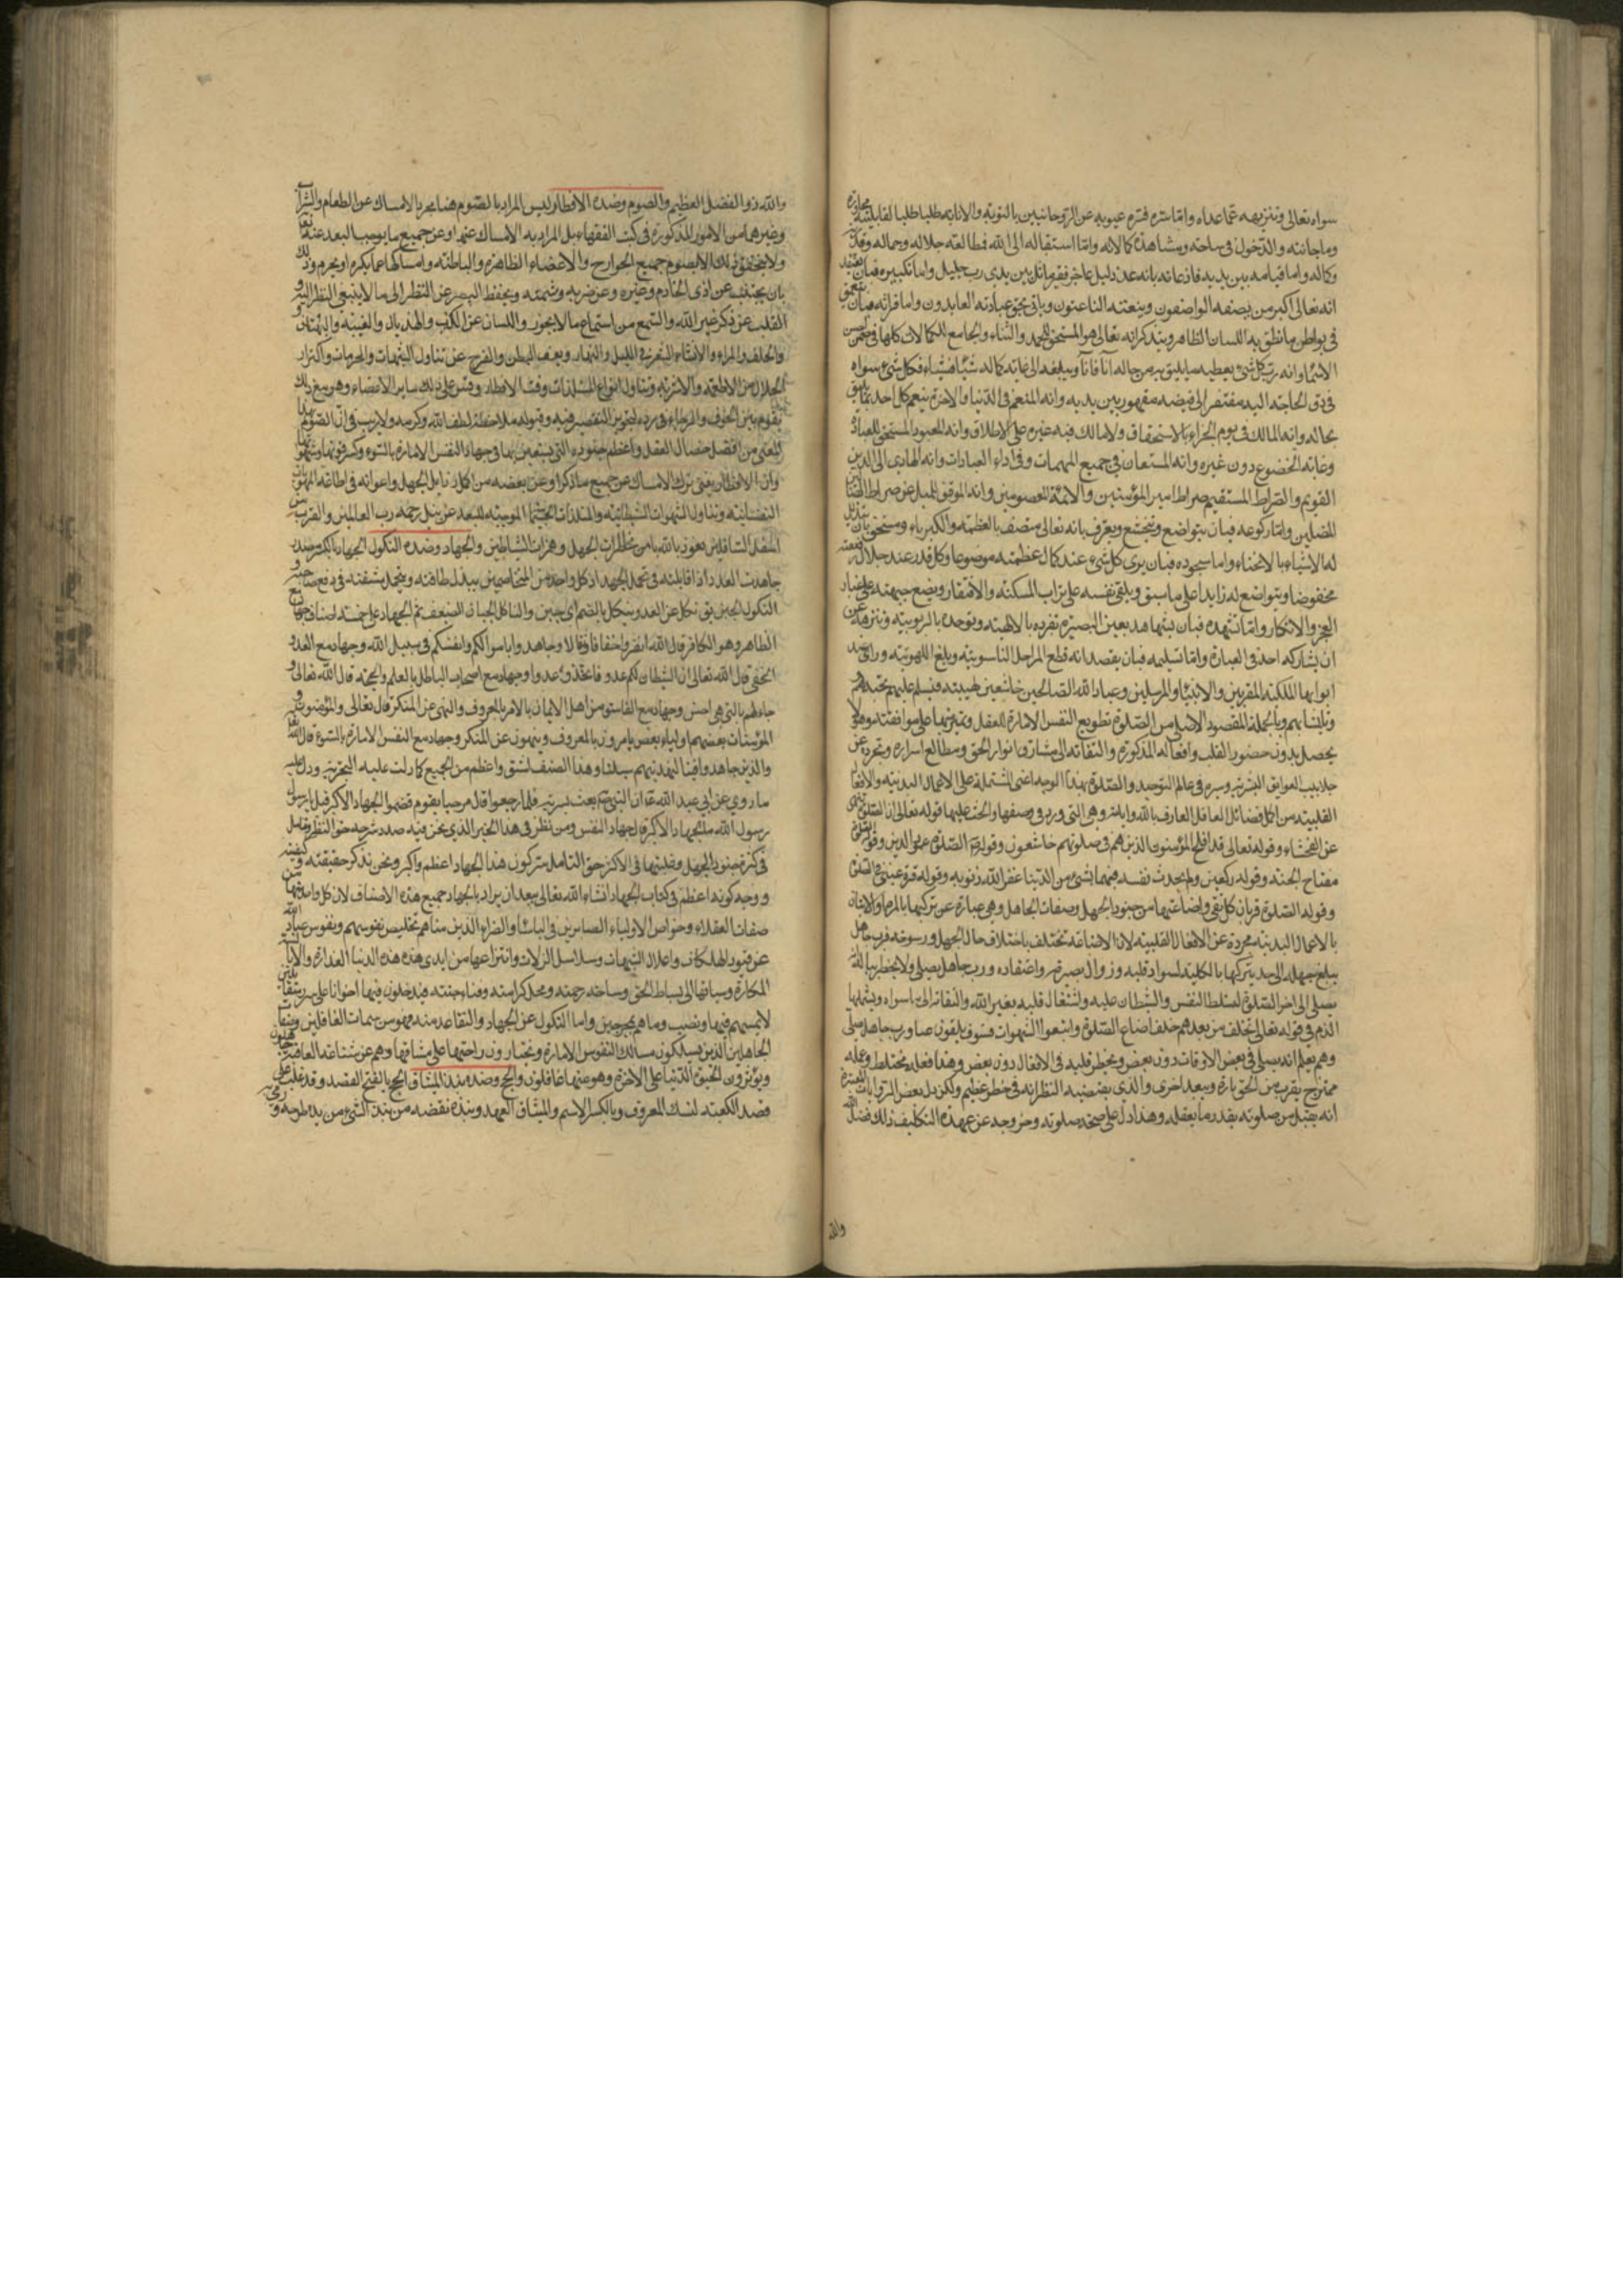 سواه تعالى وتنزيهه عما عداه واما ستره فستره عيوبه عن الروحانيين بالتوبة والانابة طلبا لقابلية مجاورة
ومناجاته والدخول في ساحته ومشاهدة كمالاته واما استقباله الى الله فمطالعته جلاله وجماله وقدرته
وكماله واما قيامه بين يديه فاذعانه بانه عبد ذليل عاجز فقير ماثل بين يدى رب جليل واما تكبيره فبان يعتقد
انه تعالى اكبر من يصفه الواصفون وينعته الناعتون وياتي بحق عبادته العابدون واما قرائته فبان
في بواطن ما نطق به اللسان الظاهر ويتذكر انه تعالى هو المستحق للحمد والثناء والجامع للكمالات كلها في ضمن
الاسماء وانه رب كل شئ يعطيه ما يليق به من حاله آنا فآنا ويبلغه الى غاية كماله شيئا فشيئا فكل شئ سواه
في ذل الحاجة اليه مفتقر الى فيضه مقهور بين يديه وانه المنعم في الدنيا والاخرة ينعم كل احد بما يليق
بحاله وانه المالك في يوم الجزاء بالاستحقاق ولا مالك فيه غيره على الاطلاق وانه المعبود المستحق للعبادة
وغاية الخضوع دون غيره وانه المستعان في جميع المهمات وفي اداء العبادات وانه الهادى الى الدين
القويم والصراط المستقيم صراط امير المؤمنين والائمة المعصومين وانه الموفق للميل عن صراط الضالين
المضلين واما ركوعه فبان يتواضع ويتخشع ويعترف بانه تعالى متصف بالعظمة والكبرياء ومستحق بان يتذلل
له الاشياء بالانحناء واما سجوده فبان يرى كل شئ عند كمال عظمته موضوعا وكل قدر عند جلال رفعته
مخفوضا ويتواضع له زايدا على ما سبق ويلقى نفسه على تراب المسكنة والافتقار ويضع جبهته على غبار
العجز والانكسار واما تشهده فبان يشاهد بعين البصيرة تفرده بالالهية وتوحده بالربوبية وتنزهه عن
ان يشاركه احد في العبادة واما تسليمه فبان يقصد انه قطع المراحل الناسوتية وبلغ اللاهوتية ورأى عند
ابوابها الملائكة المقربين والانبياء والمرسلين وعباد الله الصالحين خاشعين لهيبته فيسلم عليهم تحية لهم
وبالجملة المقصود الاصلى من الصلوة تطويع النفس الامارة للعقل وتمرينها على موافقته وهو لا
يحصل بدون حضور القلب وافعاله المذكورة والتفاته الى مشارق انوار الحق ومطالع اسراره وتجرده عن
جلابيب العوايق البشرية وسيره في عالم التوحيد والصلوة بهذا الوجه اعنى المشتملة على الاعمال البدنية والافعال
القلبية من اكمل فضائل العاقل العارف بالله واياته وهى التى ورد في وصفها والحث عليها قوله تعالى ان الصلوة تنهى
عن الفحشاء وقوله تعالى قد افلح المؤمنون الذين هم في صلوتهم خاشعون وقوله الصلوة عمود الدين وقوله الصلوة
مفتاح الجنة وقوله ركعتين ولم يحدث نفسه فيهما بشئ من الدنيا غفر الله ذنوبه وقوله قرة عينى في الصلوة
وقوله الصلوة قربان كل تقى واضاعتها من جنود الجهل وصفات الجاهل وهى عبارة عن تركها بالمرة او الاتيان
بالاعمال البدنية مجردة عن الافعال القلبية لان الاضاعة تختلف باختلاف حال الجهل ورسوخه فرب جاهل
يبلغ جهله الى حد يتركها بالكلية لسواد قلبه وزوال بصيرته واعتقاده ورب جاهل يصلى ولا يخطر بباله
يصلى الى اخر الصلوة لتسلط النفس والشيطان عليه واشتغال قلبه بغير الله والتفاته الى ما سواه ويشملهما
الذم في قوله تعالى فخلف من بعدهم خلف اضاعوا الصلوة واتبعوا الشهوات فسوف يلقون غيا ورب جاهل يصلى
وهم يعلم انه يصلى في بعض الاوقات دون بعض ويخطر قلبه في الافعال دون بعض وهذا فعله مختلط وعمله
ممتزج يقرب من الحق تارة ويبعد اخرى والذى يقتضيه النظر انه في خطر عظيم ولكن دل بعض الروايات المعتبرة
انه يقبل من صلوته بقدر ما يعقله وهذا دل على صحة صلوته وخروجه عن عهدة التكليف ذلك فضل الله
والله
والله ذو الفضل العظيم والصوم وضده الافطار ليس المراد بالصوم هنا مجرد الامساك عن الطعام والشراب
وغيرهما من الامور المذكورة في كتب الفقهاء بل المراد به الامساك عنها وعن جميع ما يوجب البعد عنه تعالى
ولا يتحقق ذلك الا بصوم جميع الجوارح والاعضاء الظاهرة والباطنة وامساكها عما يكره او يحرم وذلك
بان يجتنب عن اذى الخادم وغيره وعن ضربه وشتمه ويحفظ البصر عن النظر الى ما لا ينبغي النظر اليه و
القلب عن ذكر غير الله والسمع من استماع ما لا يجوز واللسان عن الكذب والهذيان والغيبة والبهتان
والحلف والمراء والانشاء الشعر في الليل والنهار ويعف البطن والفرج عن تناول الشبهات والحرمات واكثار
الحلال من الاطعمة والاشربة وتناول انواع المستلذات وقت الافطار وقس على ذلك ساير الاعضاء وهو مع ذلك
يقوم بين الخوف والرجاء في رده لتجويز التقصير فيه وقبوله ملاحظة لطف الله وكرمه ولا ريب في ان الصوم بهذا
المعنى من افضل خصال العقل واعظم جنوده التى يستعين بها في جهاد النفس الامارة بالسوء وكسر قوتها وشهوتها
وان الافطار يعنى ترك الامساك عن جميع ما ذكر او عن بعضه من اكمل رذايل الجهل واعوانه في اطاعة المهويات
النفسانية وتناول الشهوات الشيطانية والمستلذات الجسمانية الموجبة للبعد عن نيل رحمة رب العالمين والقرب من
اسفل السافلين نعوذ بالله من خطرات الجهل وهمزات الشياطين والجهاد وضده النكول الجهاد بالكسر مصدر
جاهدت العدو اذا قابلته في تحمل الجهد اذ كل واحد من المتخاصمين يبذل طاقته ويتحمل مشقته في دفع صاحبه و
النكول الجبن يق نكل عن العدو ينكل بالضم اى جبن والناكل الجبان الضعيف ثم الجهاد على خمسة اصناف جهاد مع
الظاهر وهو الكافر قال الله انفروا خفافا وثقالا وجاهدوا باموالكم وانفسكم في سبيل الله وجهاد مع العدو
الخفى قال الله تعالى ان الشيطان لكم عدو فاتخذوه عدوا وجهاد مع اصحاب الباطل بالعلم والحجة قال الله تعالى و
جادلهم بالتى هى احسن وجهاد مع الفاسق من اهل الايمان بالامر بالمعروف والنهى عن المنكر قال تعالى والمؤمنون و
المؤمنات بعضهم اولياء بعض يامرون بالمعروف وينهون عن المنكر وجهاد مع النفس الامارة بالسوء قال الله
والذين جاهدوا فينا لنهدينهم سبلنا وهذا الصنف اشق واعظم من الجميع كما دلت عليه التجربة ودل عليه
ما روي عن ابي عبد الله ان النبي بعث بسرية فلما رجعوا قال مرحبا بقوم قضوا الجهاد الاصغر قيل يا رسول
رسول الله ما الجهاد الاكبر قال جهاد النفس ومن نظر في هذا الخبر الذي نحن فيه صدد شرحه حق النظر وتامل
في كثرة جنود الجهل وغلبتها في الاكثر حق التامل ستركون هذا الجهاد اعظم واكبر ونحن نذكر حقيقته وكيفيته
ووجه كونه اعظم في كتاب الجهاد انشاء الله تعالى ولا يبعد ان يراد بالجهاد جميع هذه الاصناف لان كل واحد منها من
صفات العقلاء وخواص الاولياء الصابرين في الباساء والضراء الذين مناهم تخليص نفوسهم ونفوس عباد الله
عن قيود الهلكات واغلال الشبهات وسلاسل الزلات وانتزاعها من ايدى هذه الدنيا الغدارة والابالسة
المكارة وسياقها الى بساط الحق وساحة رحمته ومحل كرامته وفناء جنته فيدخلون فيها اخوانا على سرر متقابلين
لا يمسهم فيها نصب وما هم بمخرجين واما النكول عن الجهاد والتقاعد منه فهو من سمات الغافلين وصفات
الجاهلين الذين يسلكون مسالك النفوس الامارة ويختارون راحتها على مشاقها وهم عن شناعة العاقبة جاهلون
ويؤثرون الحيوة الدنيا على الاخرة وهم عنها غافلون والحج وضده نبذ الميثاق الحج بالفتح القصد وقد غلب على
قصد الكعبة لنسك المعروف وبالكسر الاسم والميثاق العهد ونبذه نقضه من نبذت الشئ من يده طرحه ورمى به